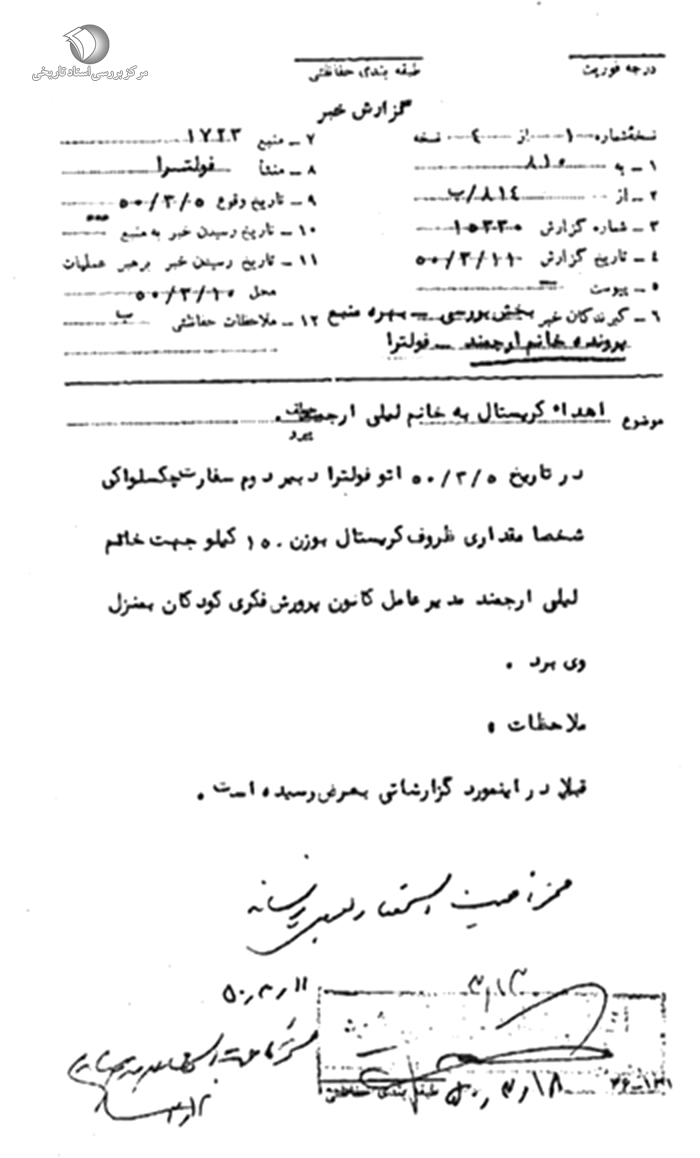 مرکز بررسی اسناد تاریخی
درجه فوریت
طبقه بندی حفاظتی
گزارش خبر
نسخهٔ شماره ۱ از ۴ نسخه
۱ ـ به ۸۱۰
۲ ـ از ۸۱۴/ب
۳ ـ شماره گزارش ۱۵۳۳۰
۴ ـ تاریخ گزارش ۵۰/۳/۱۱
۵ ـ پیوست ـ
۶ ـ گیرندگان خبر بخش بررسی ـ بهره منبع
پرونده خانم ارجمند ـ فولترا
۷ ـ منبع ۱۷۲۳
۸ ـ منشأ فولترا
۹ ـ تاریخ وقوع ۵۰/۳/۵
۱۰ ـ تاریخ رسیدن خبر به منبع
۱۱ ـ تاریخ رسیدن خبر برهبر عملیات
محل ۵۰/۳/۱۰
۱۲ ـ ملاحظات حفاظتی ب
موضوع اهداء کریستال به خانم لیلی ارجمند .
پیرو
در تاریخ ۵۰/۳/۵ اتو فولترا دبیر دوم سفارت چکسلواکی
شخصا مقداری ظروف کریستال بوزن ۱۵۰ کیلو جهت خانم
لیلی ارجمند مدیر عامل کانون پرورش فکری کودکان بمنزل
وی برد .
ملاحظات :
قبلا در اینمورد گزارشاتی بعرض رسیده است .
۵۰٫۳٫۱۱
۳٫۱۳
۵۰٫۳٫۱۸
طبقه بندی حفاظتی
۳٫۱۲